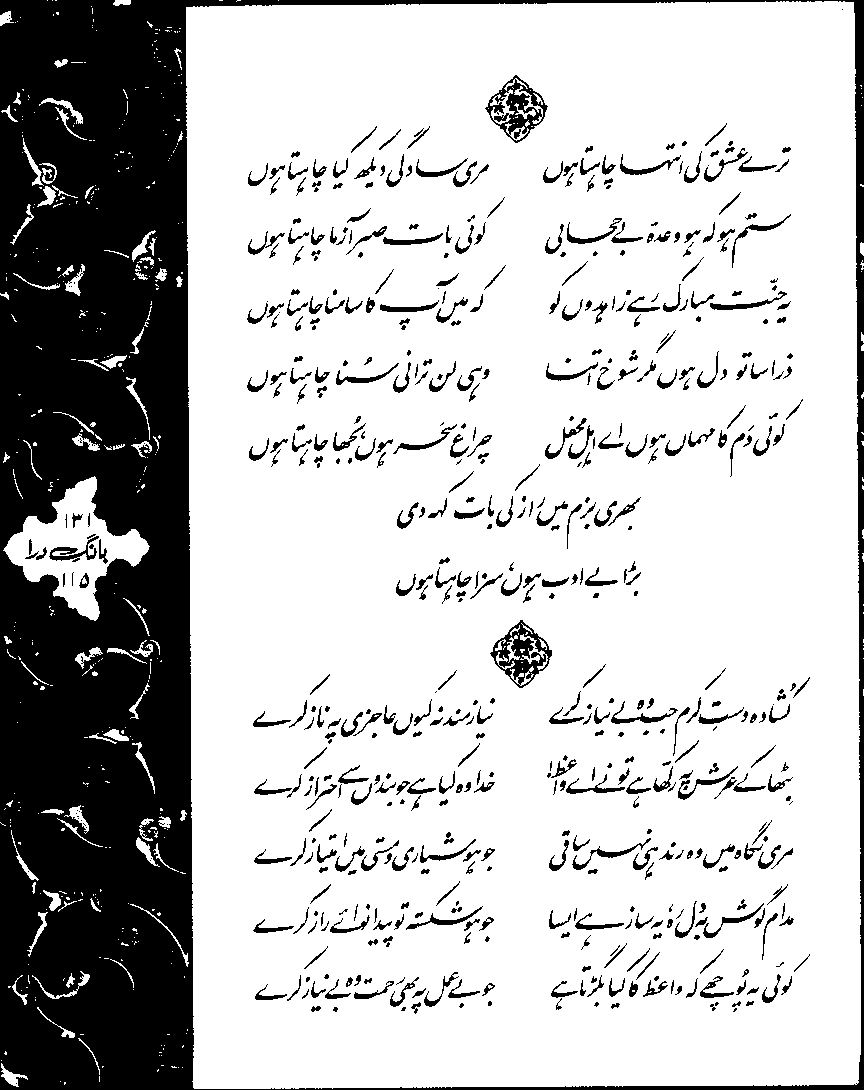 ترے عشق کی انتہا چاہتا ہوں مری سادگی دیکھ کیا چاہتا ہوں
ستم ہو کہ ہو وعدۂ بے حجابی کوئی بات صبر آزما چاہتا ہوں
یہ جنّت مبارک رہے زاہدوں کو کہ میں آپ کا سامنا چاہتا ہوں
ذرا سا تو دل ہوں مگر شوخ اتنا وہی لن ترانی سُنا چاہتا ہوں
کوئی دَم کا مہماں ہوں اے اہلِ محفل چراغِ سَحَر ہوں بُجھا چاہتا ہوں
بھری بزم میں راز کی بات کہہ دی
بڑا بے ادب ہوں، سزا چاہتا ہوں
کُشادہ دستِ کرم جب وہ بے نیاز کرے نیاز مند نہ کیوں عاجزی پہ ناز کرے
بٹھا کے عرش پہ رکھا ہے تو نے اے واعظ! خدا وہ کیا ہے جو بندوں سے احتراز کرے
مری نگاہ میں وہ رند ہی نہیں ساقی جو ہوشیاری و مستی میں امتیاز کرے
مدام گوش بہ دل رہ، یہ ساز ہے ایسا جو ہو شکستہ تو پیدا نوائے راز کرے
کوئی یہ پُوچھے کہ واعظ کا کیا بگڑتا ہے جو بے عمل پہ بھی رحمت وہ بے نیاز کرے
۱۳۱
بانگِ درا
۱۱۵